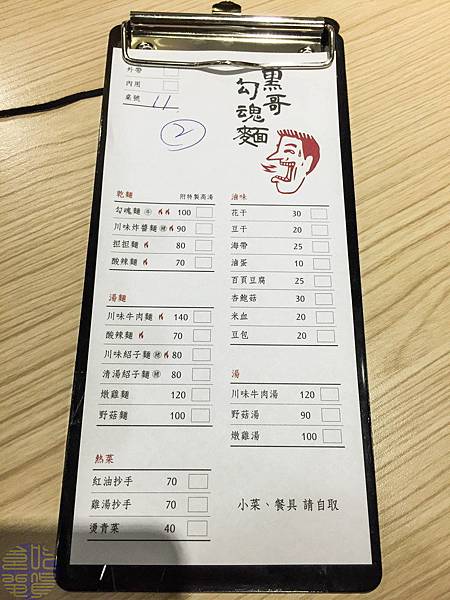 外帶
內用
桌號 11
2
黑哥
勾魂麵
乾麵 附特製高湯
勾魂麵 牛 100
川味炸醬麵 豬 90
担担麵 80
酸辣麵 70
湯麵
川味牛肉麵 140
酸辣麵 70
川味紹子麵 豬 80
清湯紹子麵 豬 80
燉雞麵 120
野菇麵 100
熱菜
紅油抄手 70
雞湯抄手 70
燙青菜 40
滷味
花干 30
豆干 20
海帶 25
滷蛋 10
百頁豆腐 25
杏鮑菇 30
米血 20
豆包 20
湯
川味牛肉湯 120
野菇湯 90
燉雞湯 100
小菜、餐具 請自取